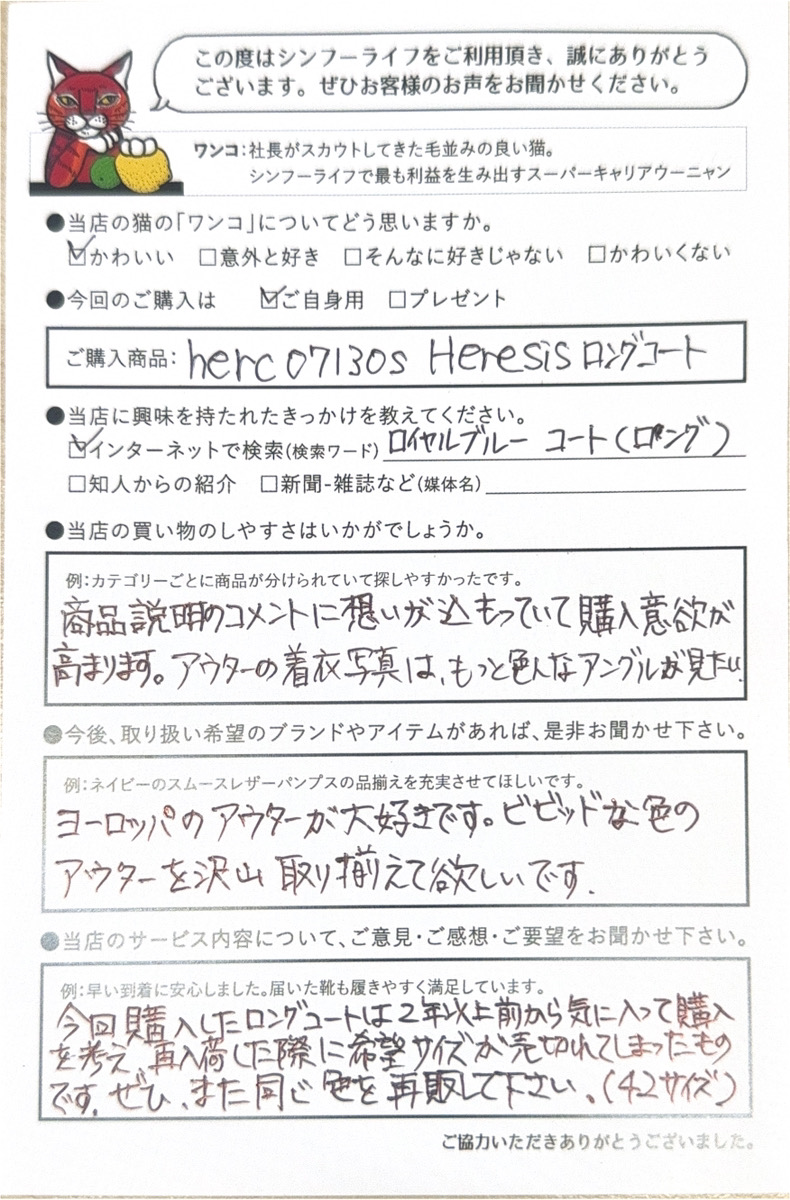 この度はシンフーライフをご利用頂き、誠にありがとう
ございます。ぜひお客様のお声をお聞かせください。
ワンコ:社長がスカウトしてきた毛並みの良い猫。
シンフーライフで最も利益を生み出すスーパーキャリアウーニャン
●当店の猫の「ワンコ」についてどう思いますか。
☑かわいい □意外と好き □そんなに好きじゃない □かわいくない
●今回のご購入は ☑ご自身用 □プレゼント
ご購入商品: herc07130s Heresis ロングコート
●当店に興味を持たれたきっかけを教えてください。
☑インターネットで検索(検索ワード) ロイヤルブルー コート(ロング)
□知人からの紹介 □新聞-雑誌など(媒体名)
●当店の買い物のしやすさはいかがでしょうか。
例:カテゴリーごとに商品が分けられていて探しやすかったです。
商品説明のコメントに想いが込もっていて購入意欲が
高まります。アウターの着衣写真は、もっと色んなアングルが見たい.
●今後、取り扱い希望のブランドやアイテムがあれば、是非お聞かせ下さい。
例:ネイビーのスムースレザーパンプスの品揃えを充実させてほしいです。
ヨーロッパのアウターが大好きです。ビビッドな色の
アウターを沢山取り揃えて欲しいです.
●当店のサービス内容について、ご意見・ご感想・ご要望をお聞かせ下さい。
例:早い到着に安心しました。届いた靴も履きやすく満足しています。
今回購入したロングコートは2年以上前から気に入って購入
を考え、再入荷した際に希望サイズが売切れてしまったもの
です。ぜひ、また同じ色を再販して下さい。(42サイズ)
ご協力いただきありがとうございました。